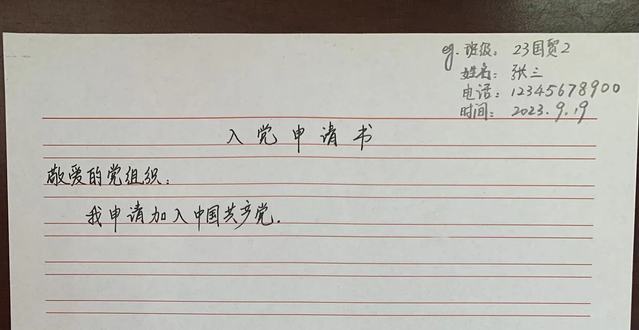 eg. 班级: 23国贸2
姓名: 张三
电话: 12345678900
时间: 2023.9.19
入党申请书
敬爱的党组织:
我申请加入中国共产党.